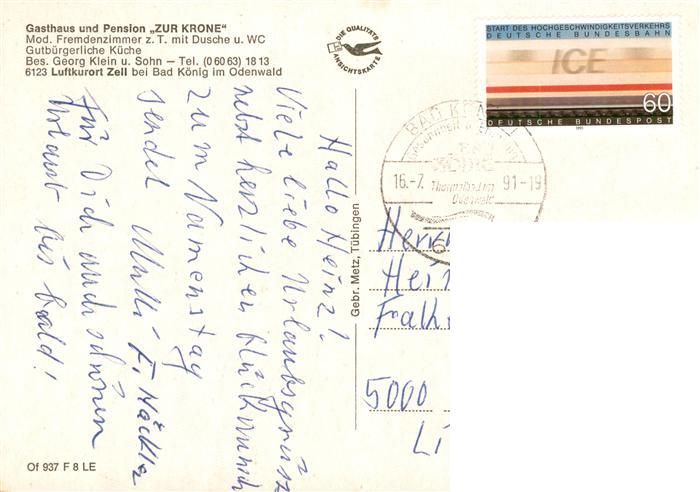 Gasthaus und Pension „ZUR KRONE"
Mod. Fremdenzimmer z. T. mit Dusche u. WC
Gutbürgerliche Küche
Bes. Georg Klein u. Sohn – Tel. (0 60 63) 18 13
6123 Luftkurort Zell bei Bad König im Odenwald
DIE QUALITÄTS
ANSICHTSKARTE
START DES HOCHGESCHWINDIGKEITSVERKEHRS
DEUTSCHE BUNDESBAHN
ICE
60
DEUTSCHE BUNDESPOST
1991
BAD KÖNIG
16.-7. 91-19
Thermalbad im
Odenwald
6
Hallo Heinz!
Viele liebe Urlaubsgrüsse
nebst herzlichen Glückwunsch
zum Namenstag
sendet Mutti
Für Dich auch schönen
Urlaub bis bald!
Gebr. Metz, Tübingen
Herrn
Hei
Falk
5000
Li
Of 937 F 8 LE